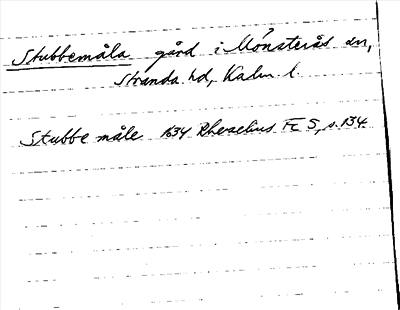 Stubbemåla gård i Mönsterås sn,
Stranda hd, Kalm. l.
Stubbe måle 1634 Rhezelius Fc 5, s. 134.